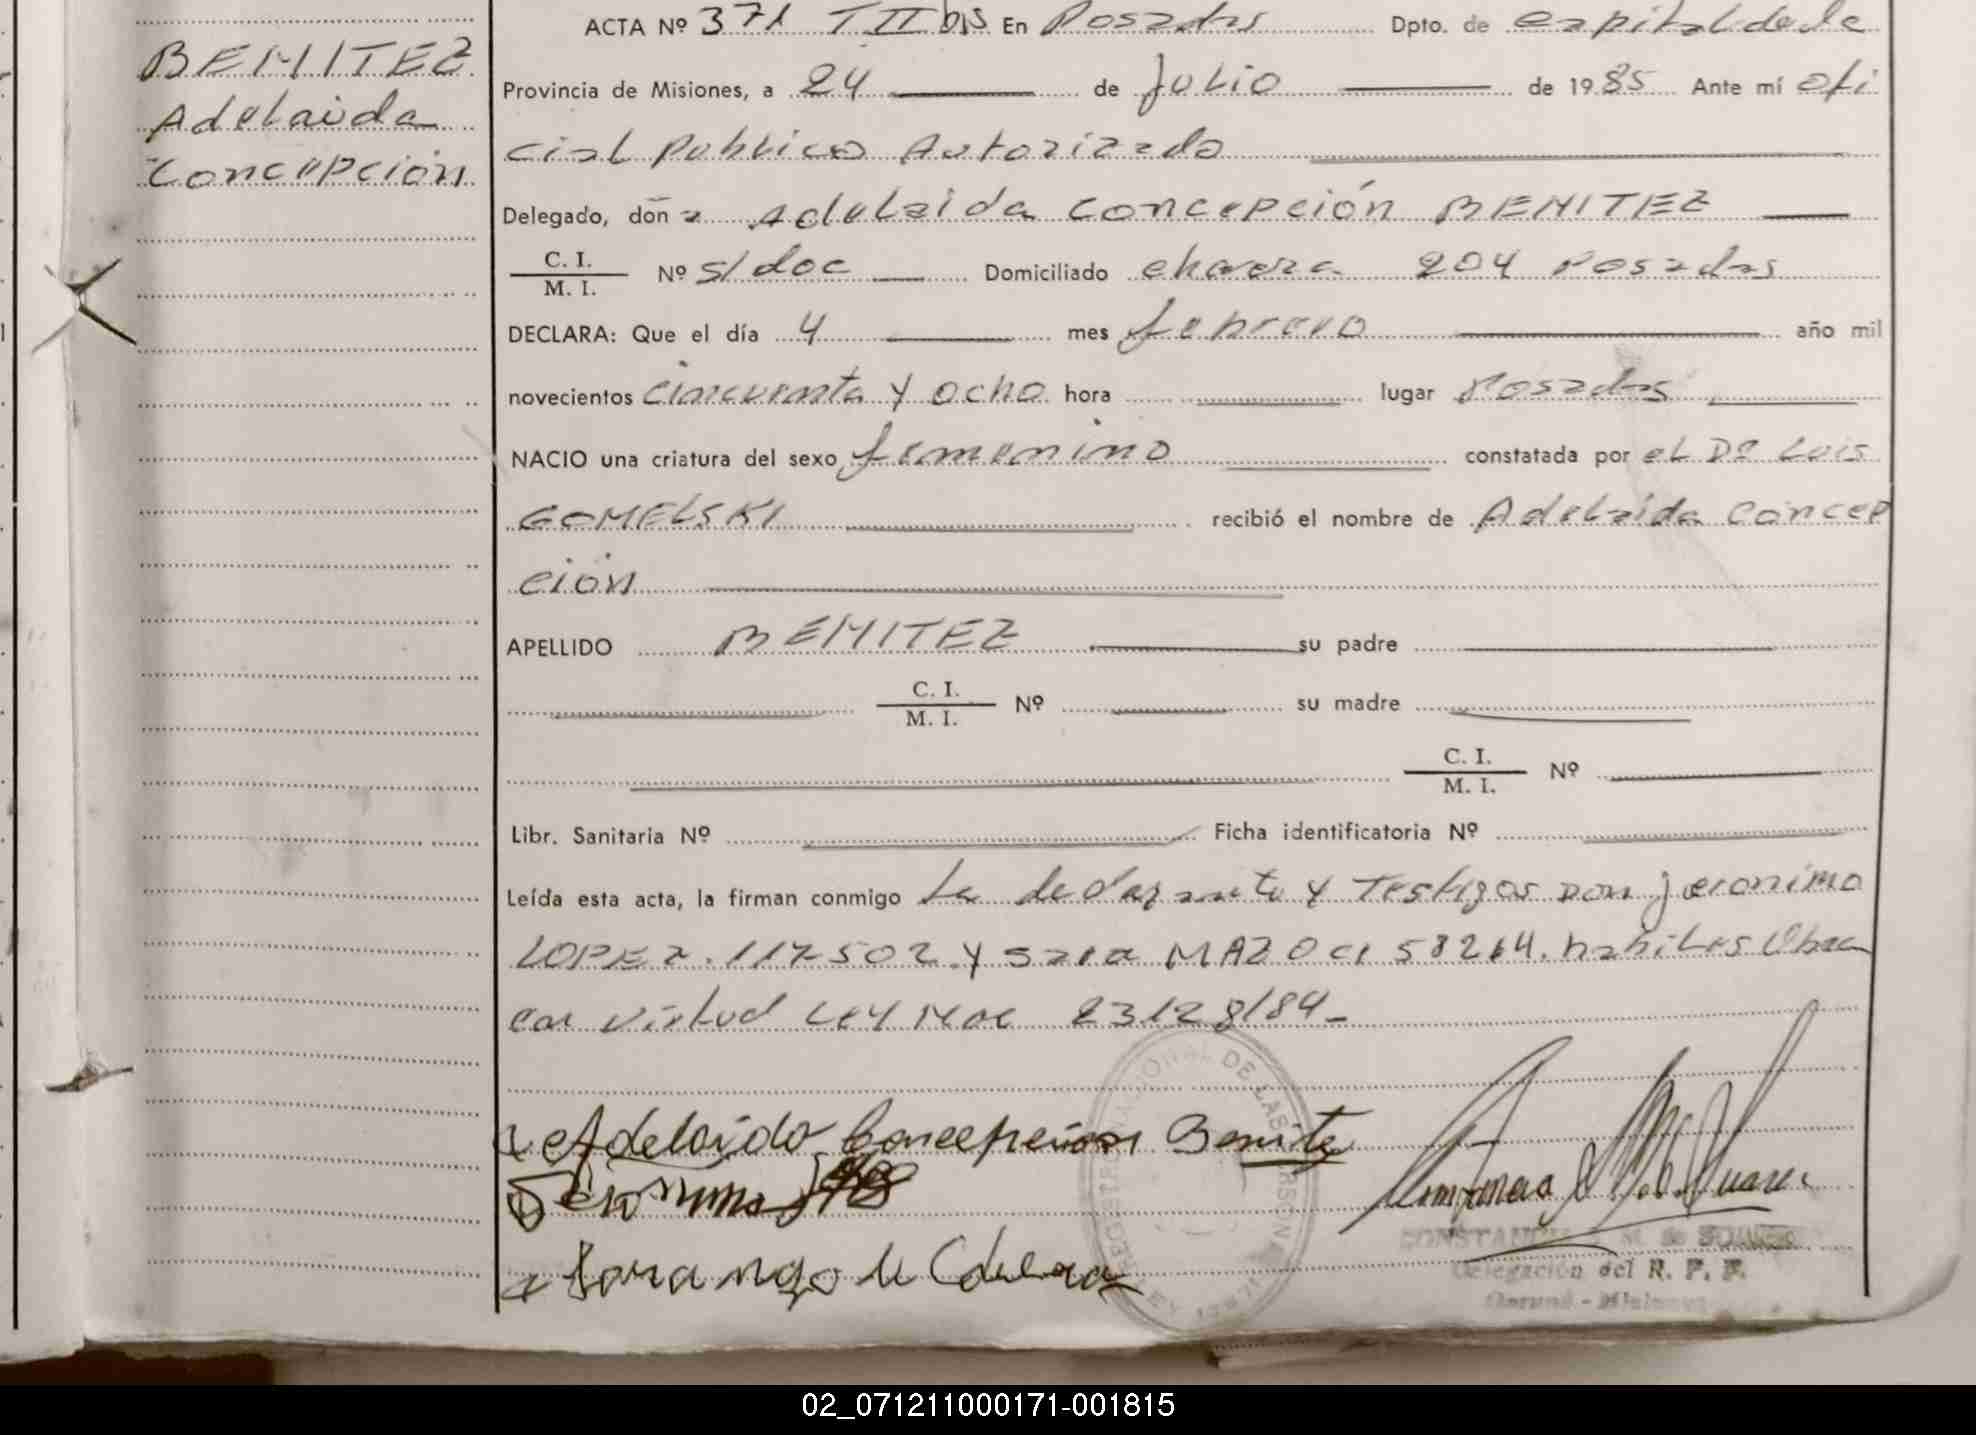 BENITEZ
Adelaida
Concepción
ACTA Nº 371 T II bis En Posadas Dpto. de capital de la
Provincia de Misiones, a 24 de Julio de 1985 Ante mí ofi
cial Publico Autorizado
Delegado, don a Adelaida Concepción BENITEZ
C. I.
M. I. Nº s/doc Domiciliado 204 Posadas
DECLARA: Que el día 4 mes febrero año mil
novecientos cincuenta y ocho hora lugar Posadas
NACIO una criatura del sexo femenino constatada por el Dº Luis
GOMELSKI recibió el nombre de Adelaida Concep
ción
APELLIDO BENITEZ su padre
C. I.
M. I. Nº su madre
C. I.
M. I. Nº
Libr. Sanitaria Nº Ficha identificatoria Nº
Leída esta acta, la firman conmigo La declarante y Testigos Don jeronimo
LOPEZ. 117502 y Sara MAZO CI 58264. habiles
en virtud Ley Nac 23128/84-
Adelaida Concepción Benite
Jeronimo
REGISTRO NACIONAL DE LAS PERSONAS
Delegación del R. P. F.
02_071211000171-001815